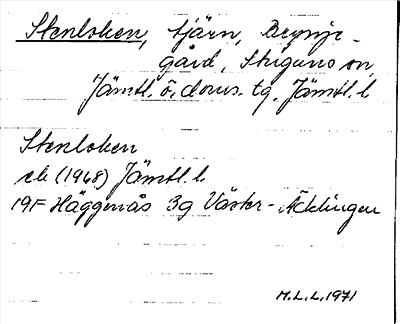 Stenloken, tjärn, Brynje-
gård, Stuguns sn,
Jämtl. ö. doms. tg, Jämtl. l
Stenloken
ek (1968) Jämtl. l.
19F Häggenås 3g Väster-Äcklingen
M.L.L. 1971